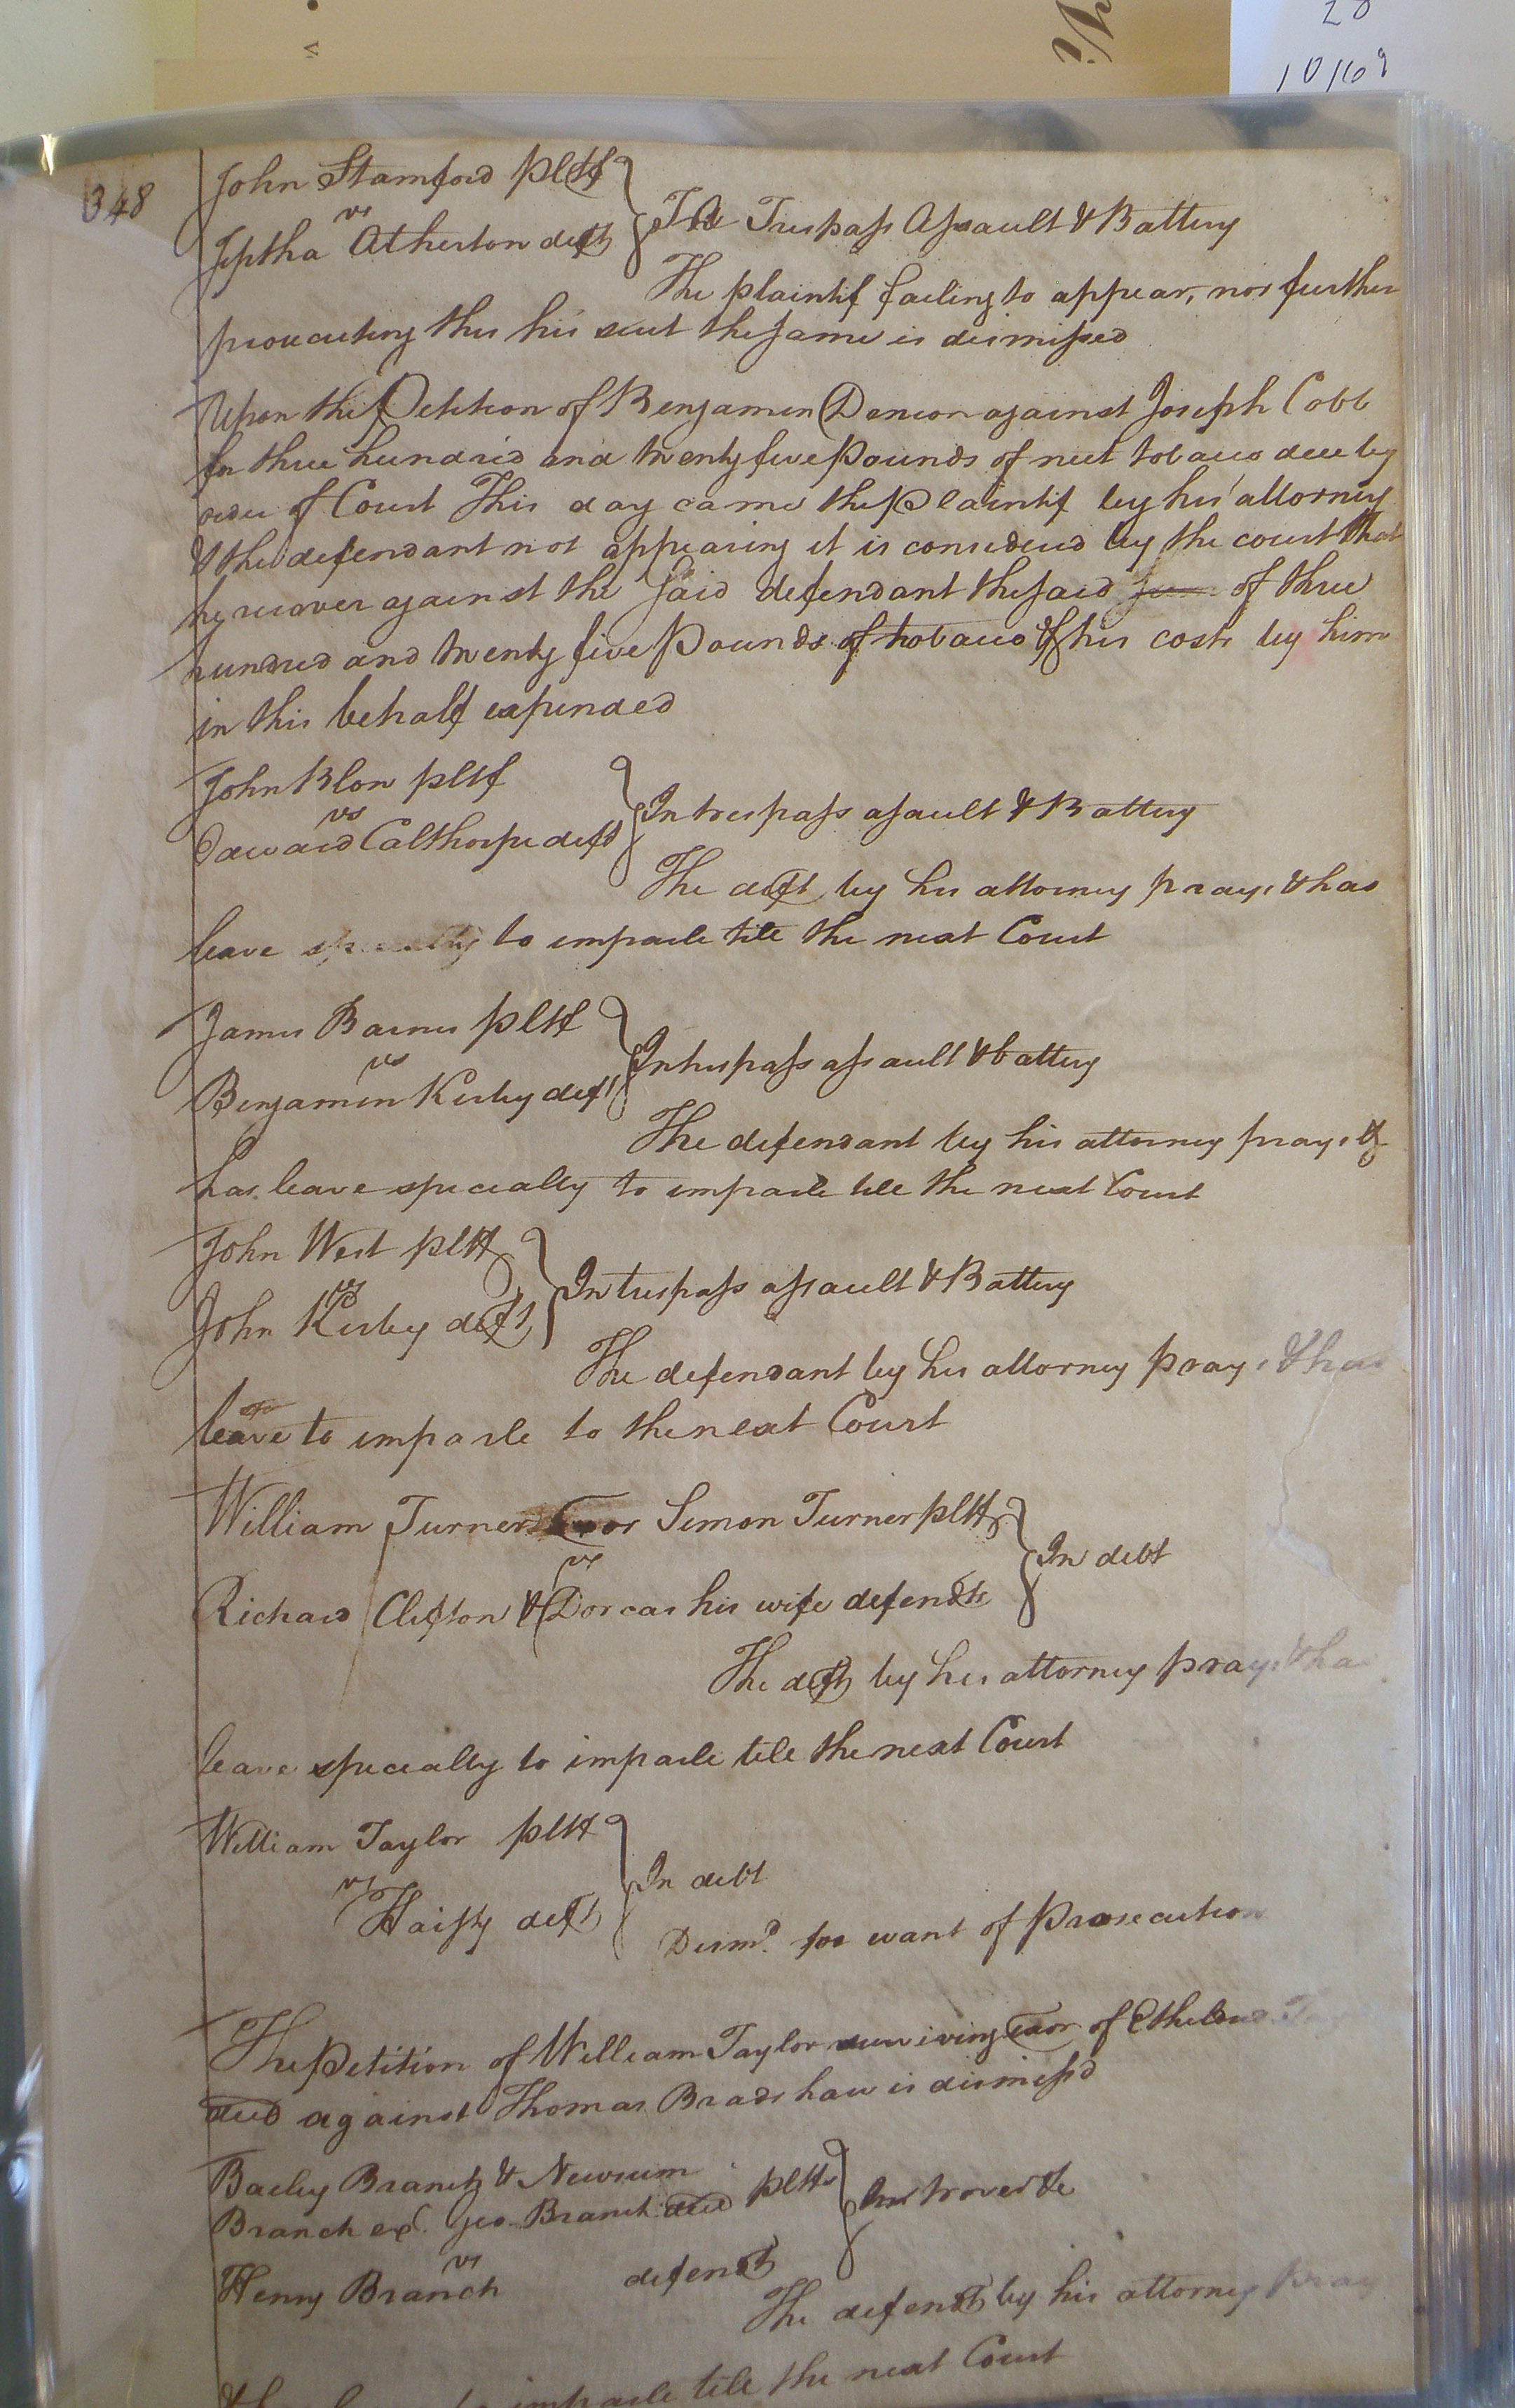 28
10/69
348
John Stamford pltf
vs
Jeptha Atherton deft
In Trespass Assault & Battery
The plaintif failing to appear, nor further
prosecuting this his suit the same is dismissed
Upon the Petition of Benjamin Denson against Joseph Cobb
for three hundred and twenty five Pounds of neet tobacco due by
order of Court This day came the Plaintif by his attorney
& the defendant not appearing it is considered by the court that
he recover against the said defendant the said sum of three
hundred and twenty five Pounds of tobacco & his costs by him
in this behalf expended
John Blow pltf
vs
Edward Calthorpe deft
In trespass assault & Battery
The deft by his attorney prays & has
leave specially to imparle till the next Court
James Barnes pltf
vs
Benjamin Kirby deft
In trespass assault & battery
The defendant by his attorney prays &
has leave specially to imparle till the next Court
John West pltf
vs
John Kirby deft
In trespass assault & Battery
The defendant by his attorney prays & has
leave to imparle to the next Court
William Turner Exor Simon Turner pltf
vs
Richard Clifton & Dorcas his wife defendts
In debt
The deft by his attorney prays & has
leave specially to imparle till the next Court
William Taylor pltf
vs
Haisty deft
In debt
Dismd. for want of Prosecution
The Petition of William Taylor surviving Exor of Etheldred
decd against Thomas Bradshaw is dismissd
Barley Branch & Newsum
Branch exr. Geo Branch decd pltfs
vs
Henry Branch defendt
In trover &c
The defendt by his attorney pray
to imparle till the next Court